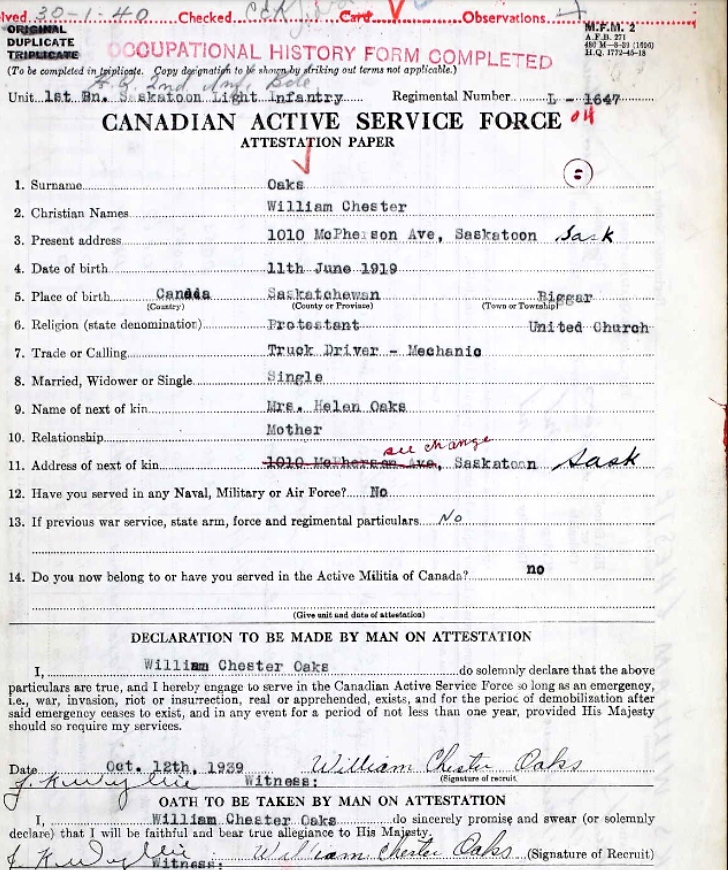 ived 30-1-40 Checked Card Observations
ORIGINAL
DUPLICATE
TRIPLICATE
M.F.M. 2
A.F.B. 271
480 M—8-39 (1696)
H.Q. 1772-45-18
OCCUPATIONAL HISTORY FORM COMPLETED
(To be completed in triplicate. Copy designation to be shown by striking out terms not applicable.)
Unit 1st Bn. Saskatoon Light Infantry Regimental Number L - 1647
CANADIAN ACTIVE SERVICE FORCE
ATTESTATION PAPER
1. Surname Oaks
2. Christian Names William Chester
3. Present address 1010 McPherson Ave, Saskatoon Sask
4. Date of birth 11th June 1919
5. Place of birth Canada Saskatchewan Biggar
(Country) (County or Province) (Town or Township)
6. Religion (state denomination) Protestant United Church
7. Trade or Calling Truck Driver - Mechanic
8. Married, Widower or Single Single
9. Name of next of kin Mrs. Helen Oaks
10. Relationship Mother
see change
11. Address of next of kin 1010 McPherson Ave, Saskatoon Sask
12. Have you served in any Naval, Military or Air Force? No
13. If previous war service, state arm, force and regimental particulars No
14. Do you now belong to or have you served in the Active Militia of Canada? no
(Give unit and date of attestation)
DECLARATION TO BE MADE BY MAN ON ATTESTATION
I, William Chester Oaks do solemnly declare that the above
particulars are true, and I hereby engage to serve in the Canadian Active Service Force so long as an emergency,
i.e., war, invasion, riot or insurrection, real or apprehended, exists, and for the period of demobilization after
said emergency ceases to exist, and in any event for a period of not less than one year, provided His Majesty
should so require my services.
Date Oct. 12th, 1939 William Chester Oaks
Witness: (Signature of recruit
OATH TO BE TAKEN BY MAN ON ATTESTATION
I, William Chester Oaks do sincerely promise and swear (or solemnly
declare) that I will be faithful and bear true allegiance to His Majesty.
Witness: William Chester Oaks (Signature of Recruit)